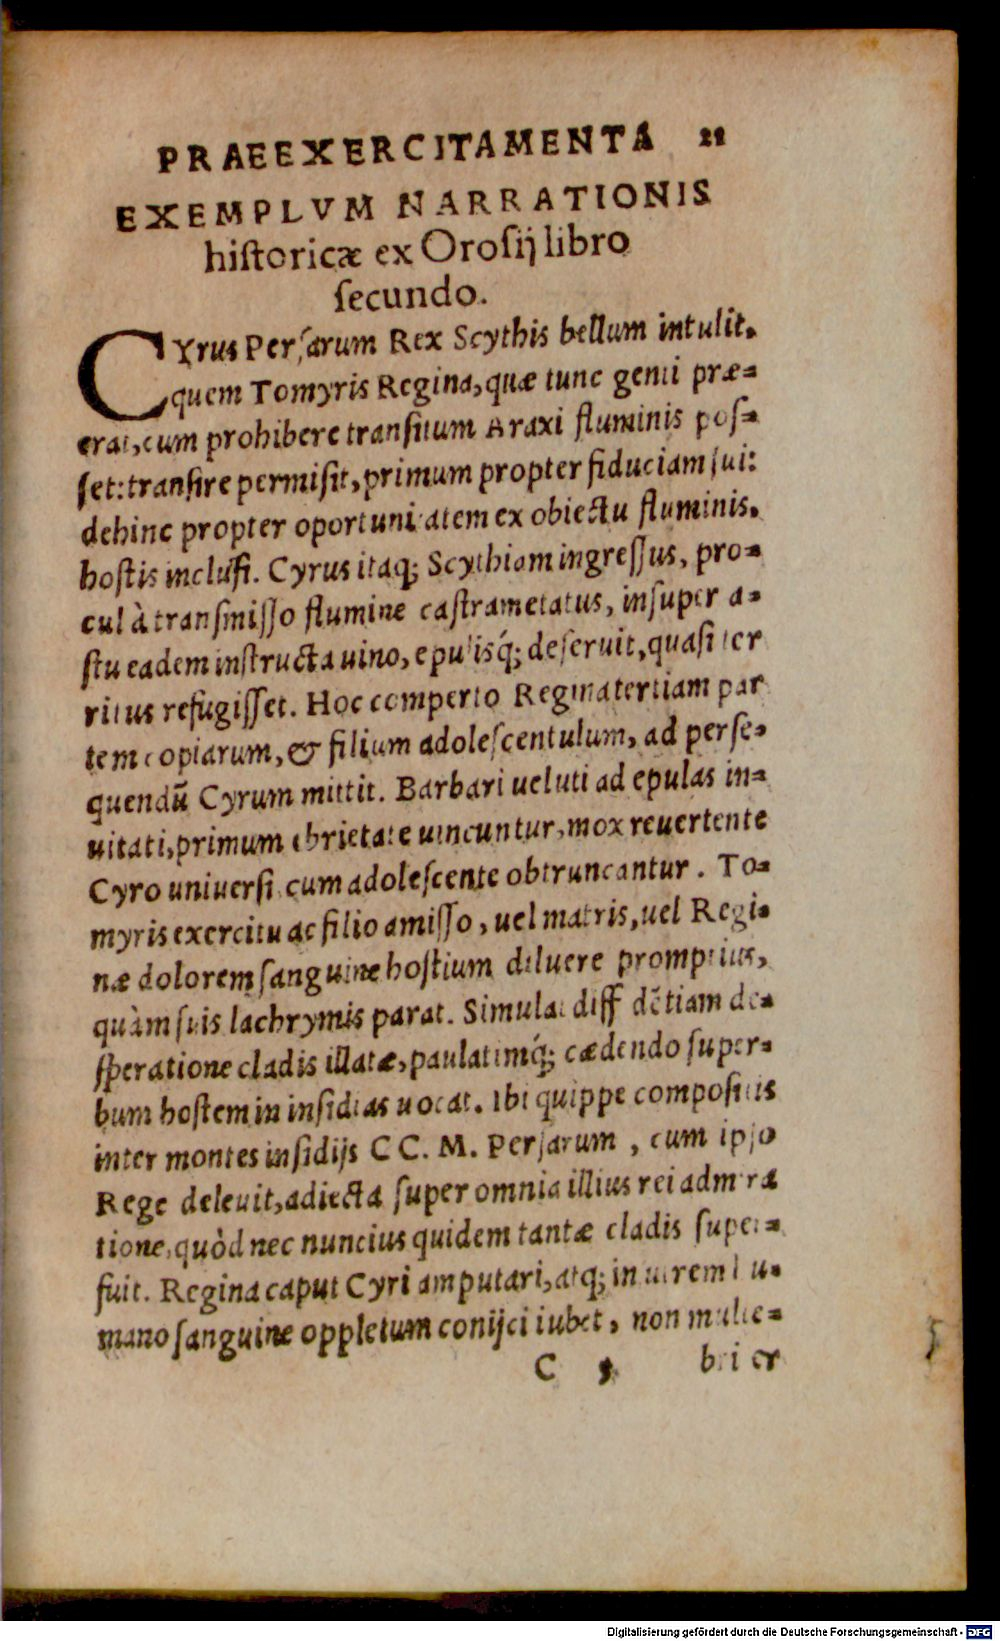 PRAEEXERCITAMENTA 21
EXEMPLVM NARRATIONIS
historicæ ex Orosij libro
secundo.
CYrus Persarum Rex Scythis bellum intulit.
quem Tomyris Regina, quæ tunc genti præ=
erat, cum prohibere transitum Araxi fluminis pos=
set: transire permisit, primum propter fiduciam sui:
dehinc propter oportunitatem ex obiectu fluminis.
hostis inclusi. Cyrus itaq; Scythiam ingressus, pro=
cul à transmisso flumine castrametatus, insuper a=
stu eadem instructa uino, epulisq́; deseruit, quasi ter
ritus refugisset. Hoc comperto Regina tertiam par
tem copiarum, & filium adolescentulum, ad perse=
quendũ Cyrum mittit. Barbari ueluti ad epulas in=
uitati, primum ebrietate uincuntur, mox reuertente
Cyro uniuersi cum adolescente obtruncantur. To=
myris exercitu ac filio amisso, uel matris, uel Regi=
næ dolorem sanguine hostium diluere promptius,
quàm suis lachrymis parat. Simulat diff dẽtiam de=
speratione cladis illatæ, paulatimq́; cædendo super=
bum hostem in insidias uocat. Ibi quippe compositis
inter montes insidijs CC. M. Persarum, cum ipso
Rege deleuit, adiecta super omnia illius rei admira
tione, quòd nec nuncius quidem tantæ cladis super=
fuit. Regina caput Cyri amputari, atq; in utrem hu=
mano sanguine oppletum conijci iubet, non mulie=
C 5 briter
Digitalisierung gefördert durch die Deutsche Forschungsgemeinschaft - DFG